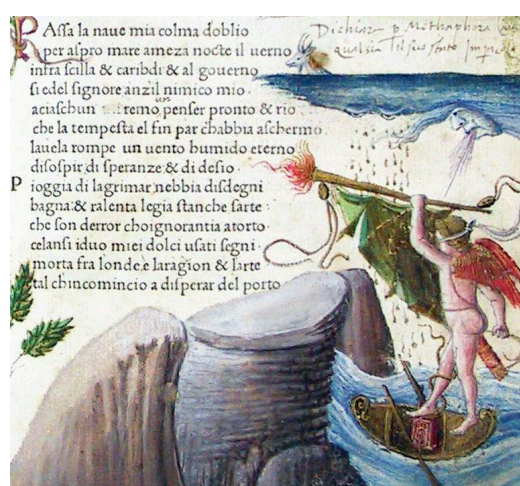 Dichiara p Mithaphora
qual sia il suo stato
PAssa la naue mia colma doblio
per aspro mare ameza nocte il uerno
infra scilla & caribdi & al gouerno
si edel signore anzil nimico mio·
aciaschun remo un penser pronto & rio
che la tempesta el fin par chabbia aschermo
lauela rompe un uento humido eterno
disospir, di speranze, & di desio·
Pioggia di lagrimar, nebbia disdegni
bagna: & ralenta legia stanche sarte·
che son derror choignorantia atorto·
celansi iduo miei dolci usati segni·
morta fra londe, e laragion & larte
tal chincomincio a disperar del porto